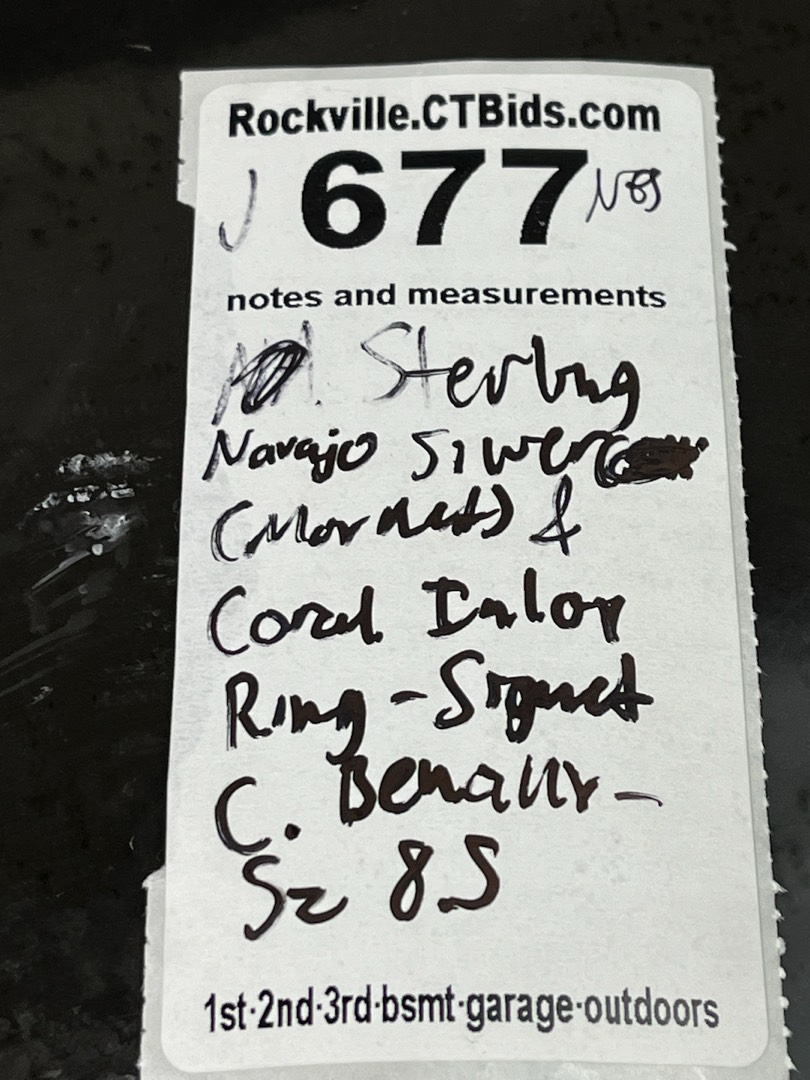 Rockville.CTBids.com
J 677
notes and measurements
Sterling
Navajo Silver
&
Coral Inlay
Ring - Signet
C. Benally -
Sz 8.5
1st·2nd·3rd·bsmt·garage·outdoors